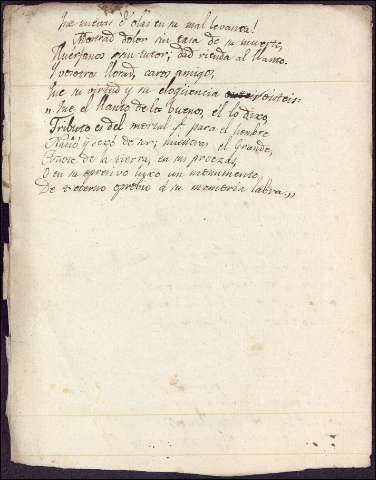 Que nuevas d' olas en su mal levanta!
Mostrad dolor sin tasa de su muerte,
Huerfanos sin tutor; dad rienda al llanto.
Y vosotros llorad, caros amigos,
Que su virtud y su eloqüencia oisteis:
"Que el llanto de los buenos, él lo dixo,
Tributo es del mortal q.e para el hombre
Nació y dexó de ser; mientras el Grande,
de la tierra, en sus proezas,
O en su opresivo luxo un monumento
De eterno oprobio á su memoria labra."